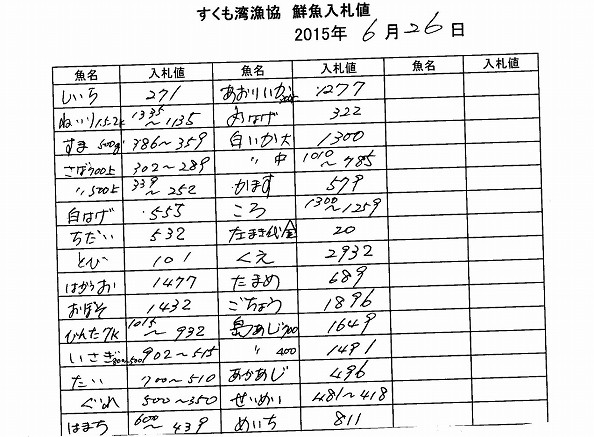 すくも湾漁協 鮮魚入札値
2015年 6月26日
魚名 入札値 魚名 入札値 魚名 入札値
しいら 271 あおりいか 1277
ねいり1.5.2k 1335～1135 おはげ 322
すま 500g 386～359 白いか大 1300
さば700上 302～289 〃中 1010～785
〃500上 339～252 かます 579
白はげ 555 ころ 1300～1259
ちだい 532 たまき代金 20
とび 101 くえ 2932
はがつお 1477 たまめ 689
おぼそ 1432 ごちょう 1896
びんた7k 1015～932 島あじ700 1649
いさぎ300～500 902～515 〃400 1491
たい 700～510 あかあじ 496
ぐれ 500～350 せいめい 481～418
はまち 600～439 めいち 811